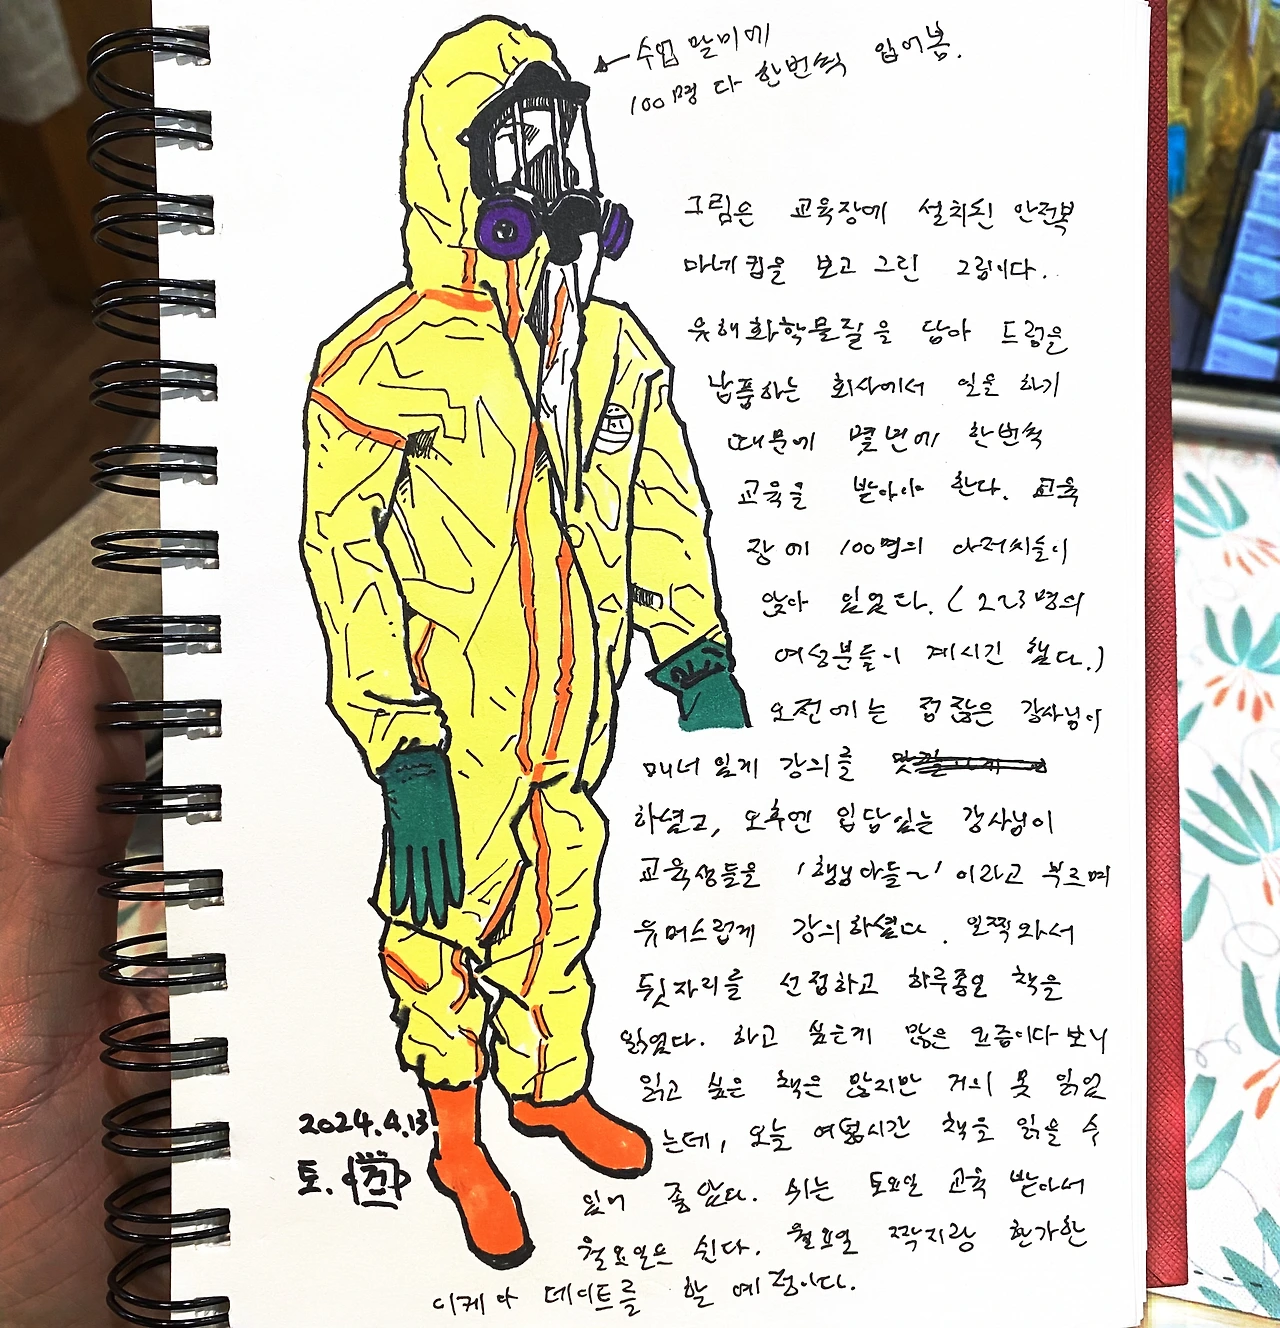 수업 말미에
100명 다 한번씩 입어봄.
그림은 교육장에 설치된 안전복
마네킹을 보고 그린 그림이다.
유해화학물질을 담아 드럼을
납품하는 회사에서 일을 하기
때문에 몇년에 한번씩
교육을 받아야 한다. 교육
장에 100명의 아저씨들이
앉아 있었다. (2~3명의
여성분들이 계시긴 했다.)
오전에는 점잖은 강사님이
매너있게 강의를
하셨고, 오후엔 입담있는 강사님이
교육생들을 '행님아들~' 이라고 부르며
유머스럽게 강의하셨다. 일찍와서
뒷자리를 선점하고 하루종일 책을
읽었다. 하고 싶은게 많은 요즘이다보니
읽고 싶은 책은 많지만 거의 못 읽었
는데, 오늘 여덟시간 책을 읽을 수
있어 좋았다. 쉬는 토요일 교육 받아서
월요일은 쉰다. 월요일 짝지랑 한가한
이케아 데이트를 할 예정이다.
2024.4.13
토. 건